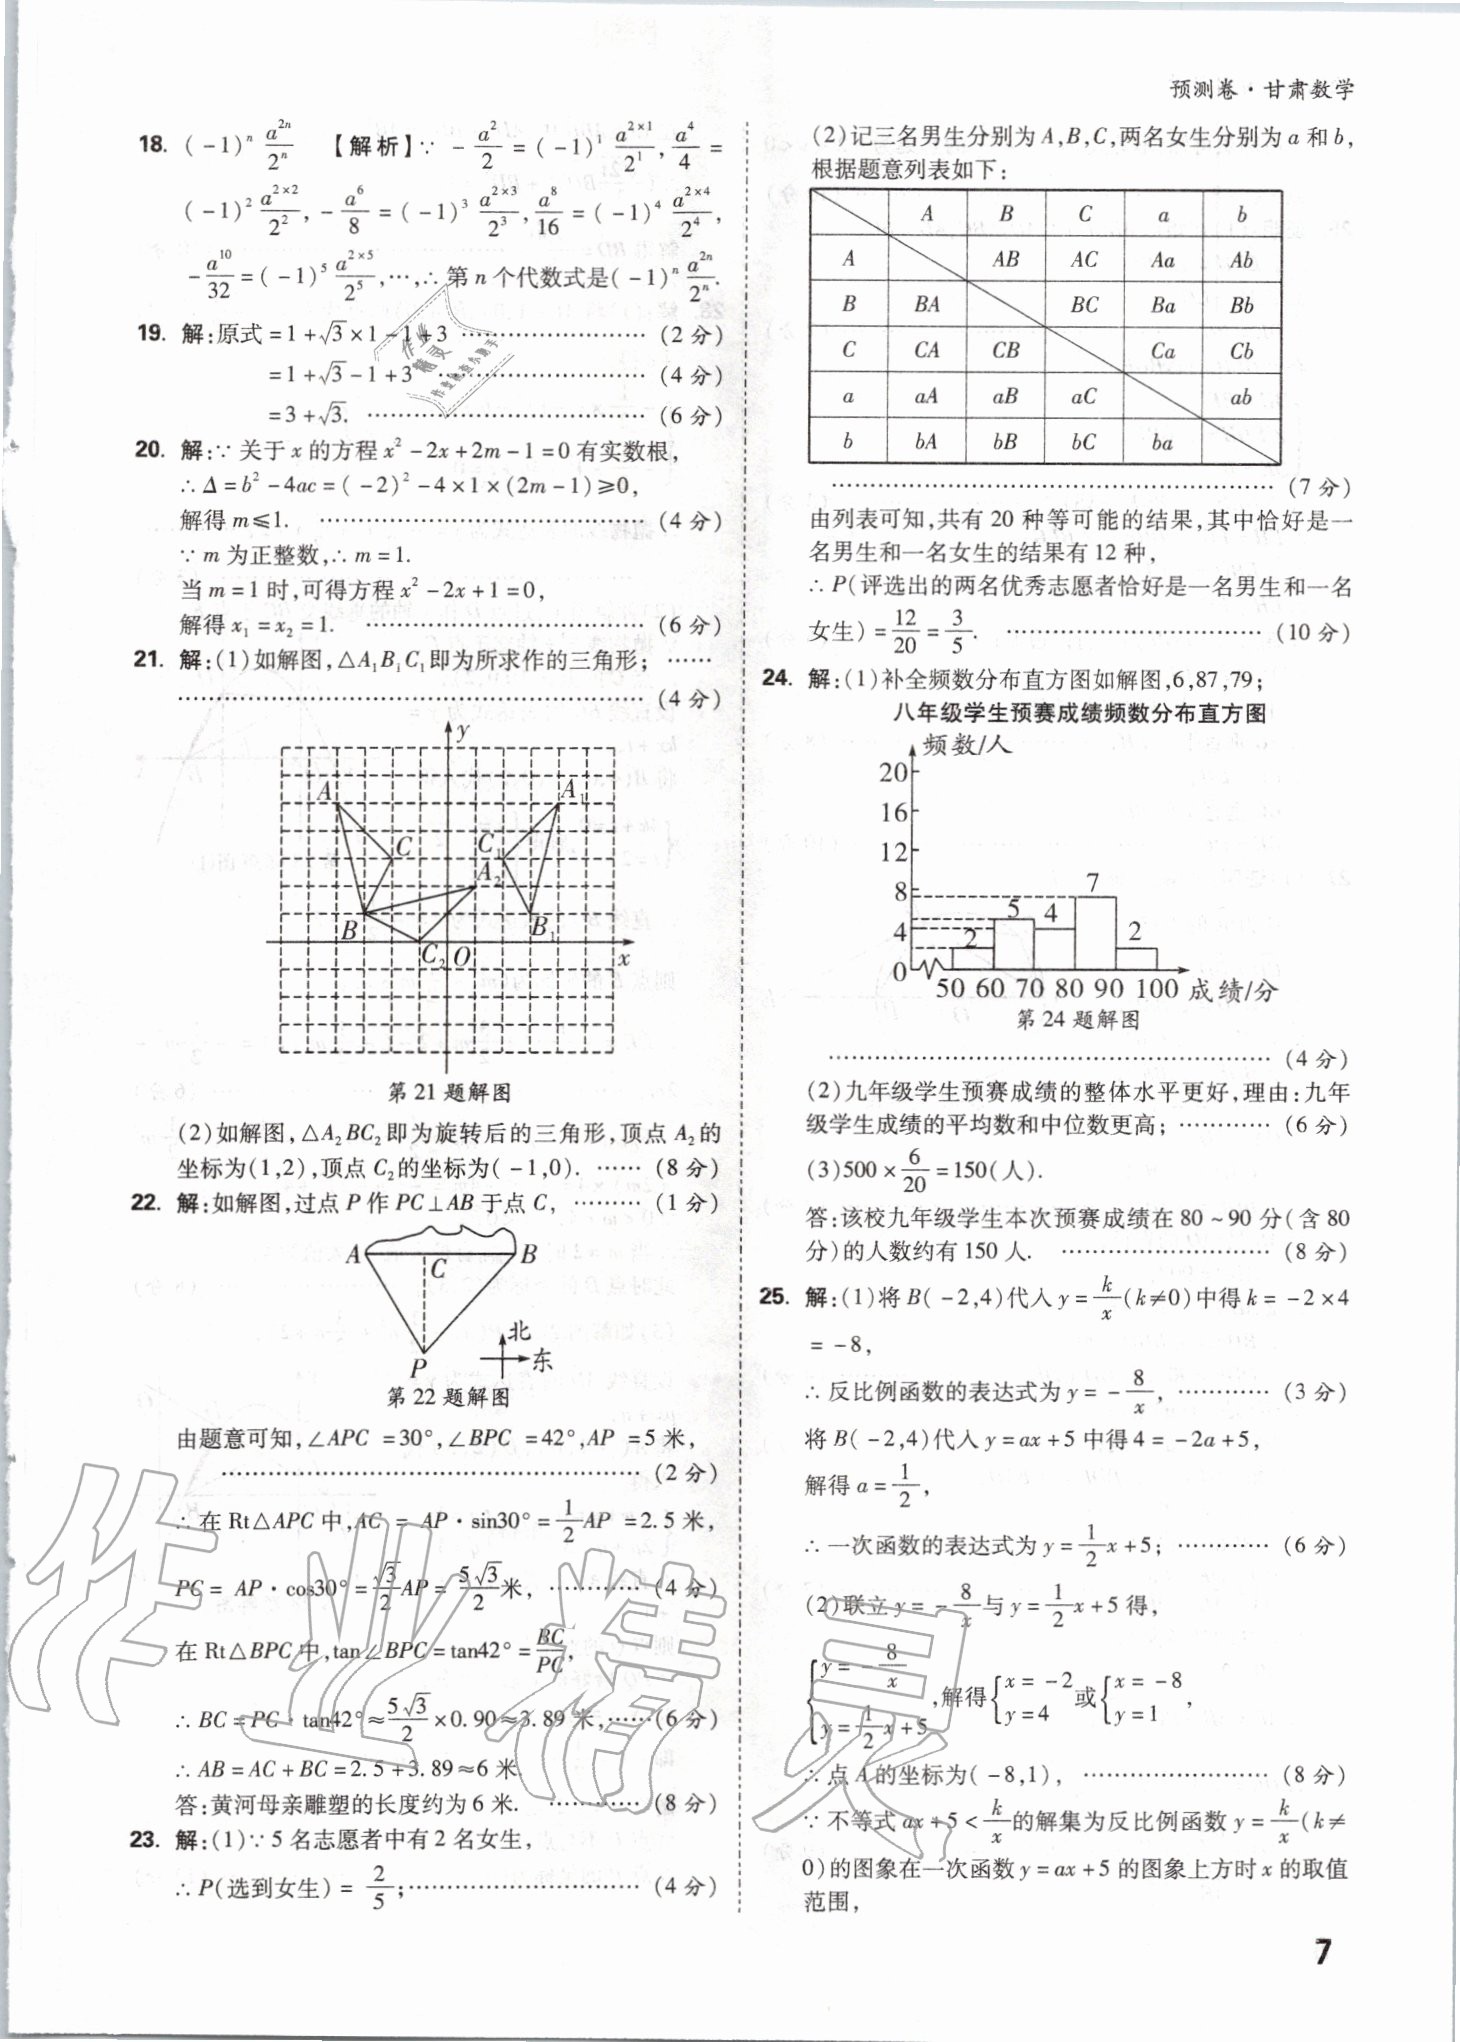 预测卷·甘肃数学
18. (-1)ⁿ a²ⁿ/2ⁿ 【解析】∵ -a²/2=(-1)¹ a^(2×1)/2¹, a⁴/4=
(-1)² a^(2×2)/2², -a⁶/8=(-1)³ a^(2×3)/2³, a⁸/16=(-1)⁴ a^(2×4)/2⁴,
-a¹⁰/32=(-1)⁵ a^(2×5)/2⁵,…,∴第n个代数式是(-1)ⁿ a²ⁿ/2ⁿ.
19. 解:原式=1+√3×1-1+3 …………………… (2分)
=1+√3-1+3 ………………………… (4分)
=3+√3. ……………………………… (6分)
20. 解:∵关于x的方程x²-2x+2m-1=0有实数根,
∴Δ=b²-4ac=(-2)²-4×1×(2m-1)≥0,
解得m≤1. …………………………………… (4分)
∵m为正整数,∴m=1.
当m=1时,可得方程x²-2x+1=0,
解得x₁=x₂=1. ……………………………… (6分)
21. 解:(1)如解图,△A₁B₁C₁即为所求作的三角形; ……
…………………………………………………… (4分)
y
A A₁
C C₁
A₂
B B₁
C₂ O x
第21题解图
(2)如解图,△A₂BC₂即为旋转后的三角形,顶点A₂的
坐标为(1,2),顶点C₂的坐标为(-1,0). …… (8分)
22. 解:如解图,过点P作PC⊥AB于点C, ……… (1分)
A C B
P
北
东
第22题解图
由题意可知,∠APC=30°,∠BPC=42°,AP=5米,
……………………………………………… (2分)
∴在Rt△APC中,AC=AP·sin30°=1/2AP=2.5米,
PC=AP·cos30°=√3/2AP=5√3/2米, ………… (4分)
在Rt△BPC中,tan∠BPC=tan42°=BC/PC,
∴BC=PC·tan42°≈5√3/2×0.90≈3.89米,……(6分)
∴AB=AC+BC=2.5+3.89≈6米.
答:黄河母亲雕塑的长度约为6米. ………… (8分)
23. 解:(1)∵5名志愿者中有2名女生,
∴P(选到女生)=2/5;………………………… (4分)
(2)记三名男生分别为A,B,C,两名女生分别为a和b,
根据题意列表如下:
A B C a b
A AB AC Aa Ab
B BA BC Ba Bb
C CA CB Ca Cb
a aA aB aC ab
b bA bB bC ba
………………………………………………… (7分)
由列表可知,共有20种等可能的结果,其中恰好是一
名男生和一名女生的结果有12种,
∴P(评选出的两名优秀志愿者恰好是一名男生和一名
女生)=12/20=3/5. …………………………… (10分)
24. 解:(1)补全频数分布直方图如解图,6,87,79;
八年级学生预赛成绩频数分布直方图
频数/人
20
16
12
8
4
0
2 5 4 7 2
50 60 70 80 90 100 成绩/分
第24题解图
………………………………………………… (4分)
(2)九年级学生预赛成绩的整体水平更好,理由:九年
级学生成绩的平均数和中位数更高; ………… (6分)
(3)500×6/20=150(人).
答:该校九年级学生本次预赛成绩在80~90分(含80
分)的人数约有150人. ……………………… (8分)
25. 解:(1)将B(-2,4)代入y=k/x(k≠0)中得k=-2×4
=-8,
∴反比例函数的表达式为y=-8/x, ………… (3分)
将B(-2,4)代入y=ax+5中得4=-2a+5,
解得a=1/2,
∴一次函数的表达式为y=1/2x+5; ………… (6分)
(2)联立y=-8/x与y=1/2x+5得,
{y=-8/x, y=1/2x+5,解得{x=-2 y=4或{x=-8 y=1,
∴点A的坐标为(-8,1), …………………… (8分)
∵不等式ax+5<k/x的解集为反比例函数y=k/x(k≠
0)的图象在一次函数y=ax+5的图象上方时x的取值
范围,
7
作业精灵
作业
精灵